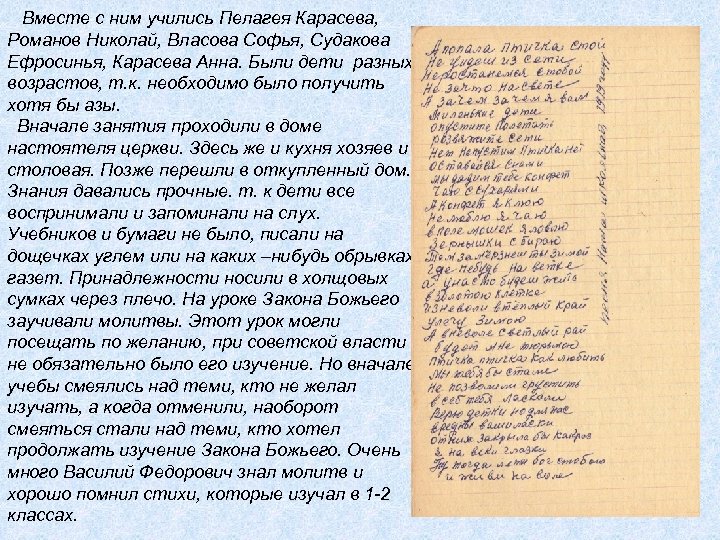 Вместе с ним учились Пелагея Карасева,
Романов Николай, Власова Софья, Судакова
Ефросинья, Карасева Анна. Были дети разных
возрастов, т.к. необходимо было получить
хотя бы азы.
Вначале занятия проходили в доме
настоятеля церкви. Здесь же и кухня хозяев и
столовая. Позже перешли в откупленный дом.
Знания давались прочные. т. к дети все
воспринимали и запоминали на слух.
Учебников и бумаги не было, писали на
дощечках углем или на каких –нибудь обрывках
газет. Принадлежности носили в холщовых
сумках через плечо. На уроке Закона Божьего
заучивали молитвы. Этот урок могли
посещать по желанию, при советской власти
не обязательно было его изучение. Но вначале
учебы смеялись над теми, кто не желал
изучать, а когда отменили, наоборот
смеяться стали над теми, кто хотел
продолжать изучение Закона Божьего. Очень
много Василий Федорович знал молитв и
хорошо помнил стихи, которые изучал в 1-2
классах.
А попала птичка стой
Не уйдеш из сети
Неростанемся стобой
Не зачто насвете
А зачем зачем я вам
Миленькие дети
опустите полетать
розвяжите сети
Нет непустим птичка нет
оставайся снами
мы дадим тебе конфет
Чаю с сухарями
А конфет я клюю
Не люблю я чаю
в поле мошек я ловлю
Зернышки сбираю
Там замерзнеш ты зимой
Где небудь на ветке
а у нас то будеш жить
в Золотой клетке
из неволи втеплый край
Улечу Зимою
А вневоле светлый рай
будет мне тюрьмою
Птичка птичка как любить
Мы тебя бы стали
Не позволили грустить
Верю детки но для нас
вредны ваши ласки
я на веки глазки
и живи на воле